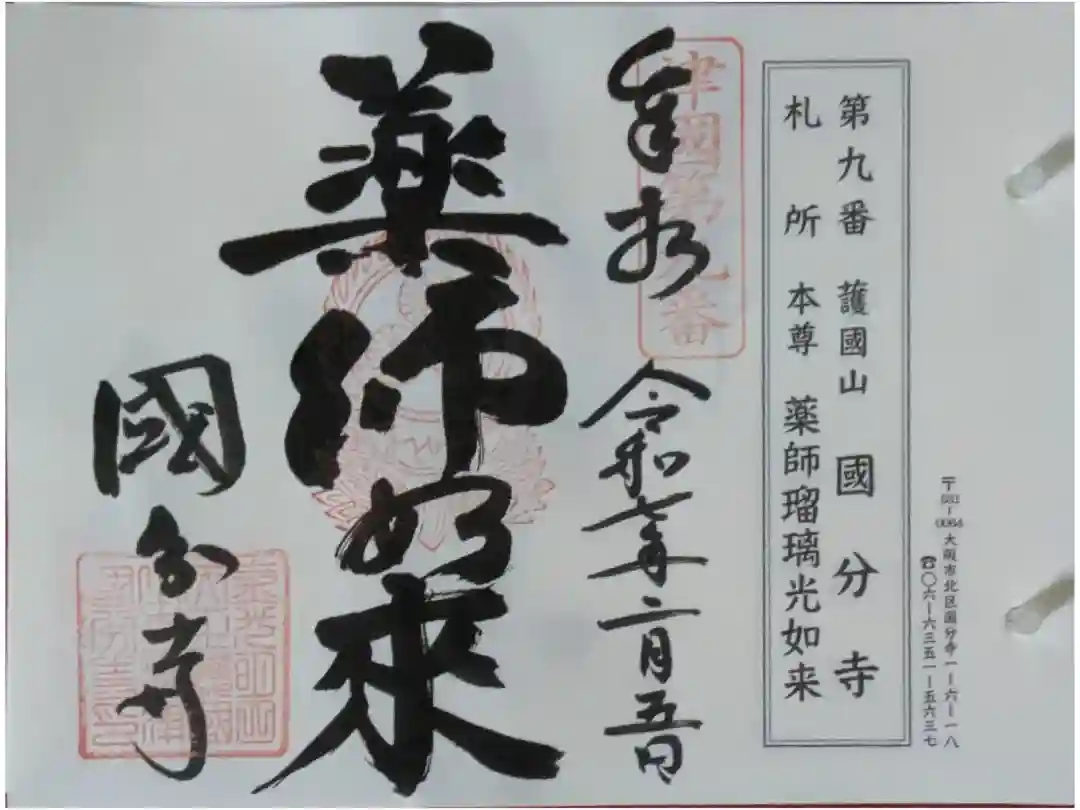 〒 0064 大阪市北区国分寺一ー六ー一八
☎〇六ー六三五一ー五六三七
第九番 護國山 國分寺
札所 本尊 薬師瑠璃光如来
津國第九番
奉拝 令和七年二月五日
薬師如來
國分寺